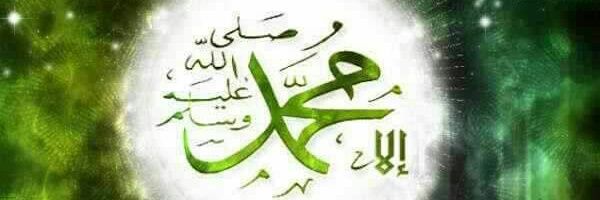 إلا محمد
صلى
الله
عليه
وسلم